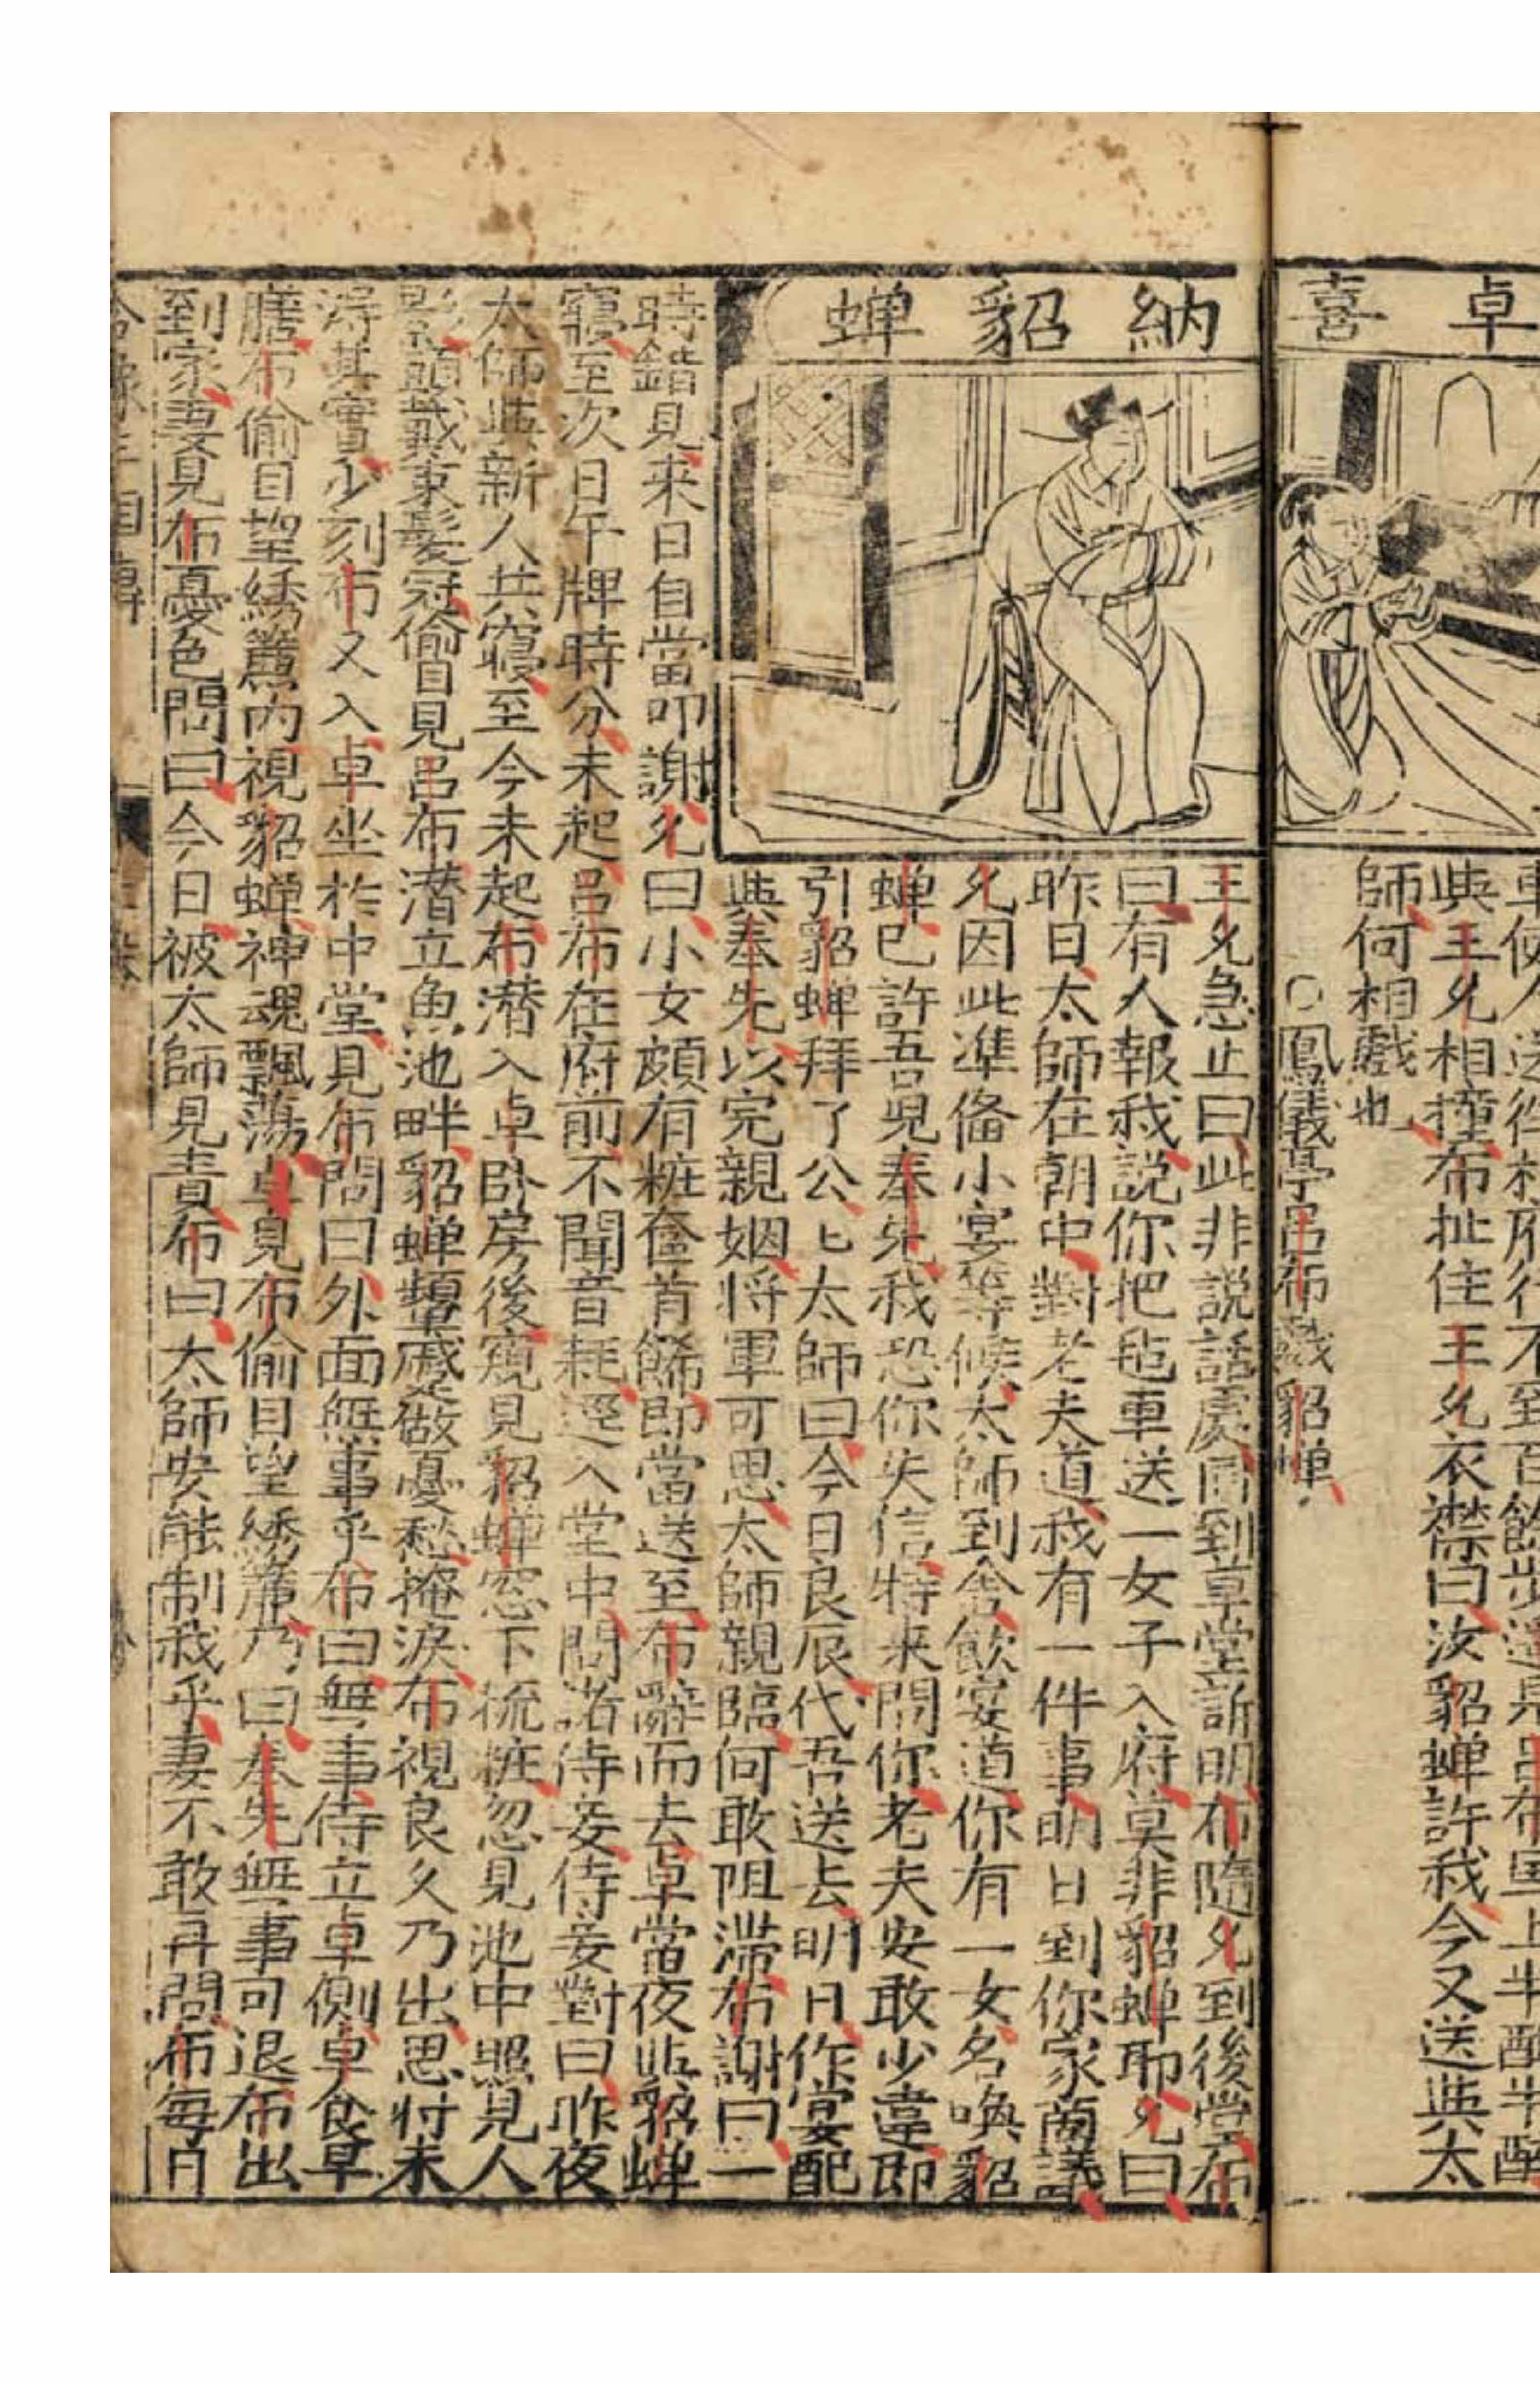 卓喜
納貂蟬
與王允相撞布扯住王允衣襟曰汝貂蟬許我今又送與太
師何相戲也
○鳳儀亭呂布戲貂蟬
王允急止曰此非說話處同到草堂訴明布隨允到後堂布
曰有人報我說你把毡車送一女子入府莫非貂蟬耶允曰
昨日太師在朝中對老夫道我有一件事明日到你家商議
允因此準俻小宴等候太師到舍飲宴道你有一女名喚貂
蟬已許吾兒奉先我恐你失信特来問你老夫安敢少違即
引貂蟬拜了公公太師曰今日良辰代吾送去明日作宴配
與奉先以完親姻将軍可思太師親臨何敢阻滞布謝曰一
時錯見来日自當叩謝允曰小女頗有粧奩首餙即當送至布辭而去卓當夜貼貂蟬
寢至次日午牌時分未起呂布在府前不聞音耗逕入堂中問諸侍妾侍妾對曰昨夜
太師與新人共寢至今未起布潜入卓卧房後窺見貂蟬窓下梳粧忽見池中照見人
影頭戴束髪冠偷目見呂布潜立魚池畔貂蟬顰蹙做憂愁掩淚布視良久乃出思忖未
得其實少刻布又入卓坐於中堂見布問曰外面無事乎布曰無事侍立卓側卓食早
膳布偷目望綉簾内視貂蟬神魂飄蕩卓見布偷目望綉簾乃曰奉先無事可退布出
到家妻見布憂色問曰今日被太師見責布曰太師安能制我乎妻不敢再問布每日